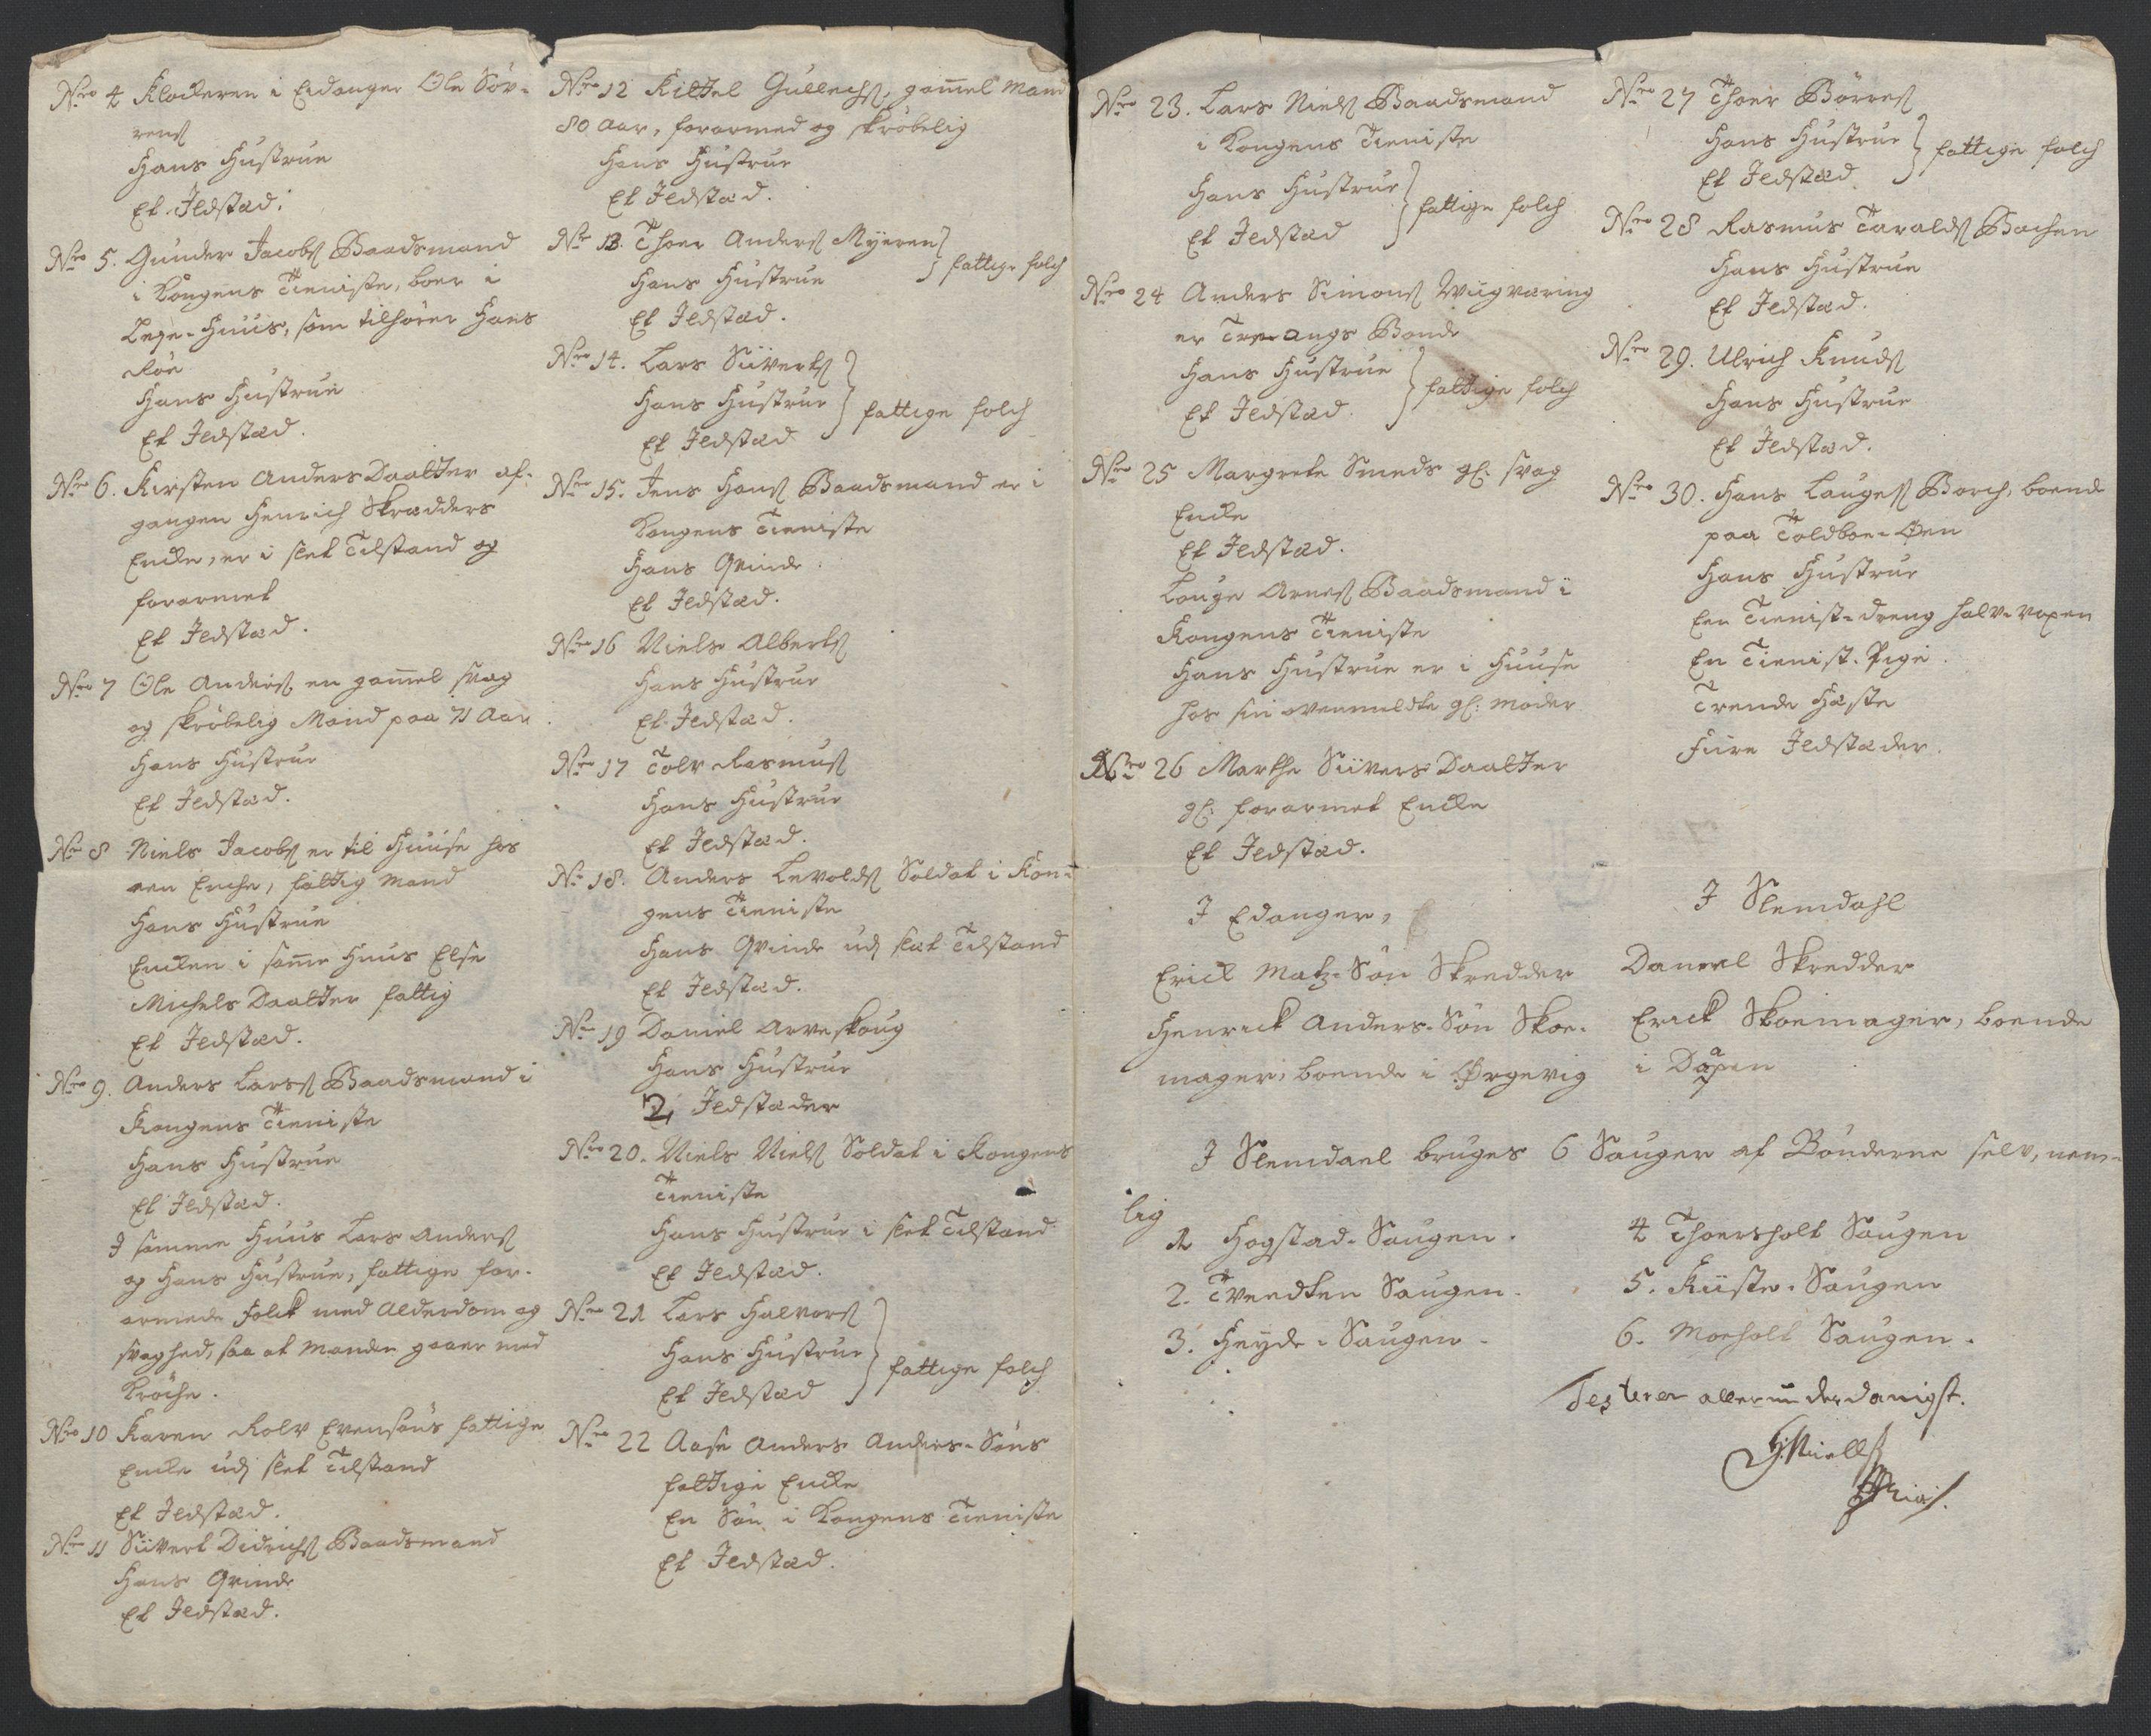 Nro 4 Klockeren i Eidanger Ole Søv-
rens
Hans Hustrue
Et Ildstæd.
Nro 5. Gunder Jacobs Baadsmand
i Kongens Tieniste, boer i
Leye-Huus, som tilhører Hans
Röe
Hans Hustrue
Et Ildstæd.
Nro 6. Kirsten Anders Daatter af-
gangen Henrich Skrædders
Encke, er i slet Tilstand og
forarmet
Et Ildstæd.
Nro 7 Ole Anders. en gam̄el svag
og skröbelig Mand paa 71 Aar
Hans Hustrue
Et Ildstæd.
Nro 8 Niels Jacobs er til Huuse hos
een Enche, fattig Mand
Hans Hustrue
Encken i sam̄e Huus Else
Michels Daatter fattig
Et Ildstæd.
Nro 9. Anders Larss Baadsmand i
Kongens Tieniste
Hans Hustrue
Et Ildstæd.
I samme Huus Lars Anders
og Hans Hustrue, fattige for-
armede Folck med Alderdom og
svaghed, saa at Manden gaaer med
Kröche.
Nro 10 Karen Rolv Evensöns fattige
Encke udj slet Tilstand
Et Ildstæd.
Nro 11 Siivert Didrichs Baadsmand
Hans Qvinde
Et Ildstæd.
Nro 12 Kittel Gullechs, gam̄el Mand
80 Aar, forarmed og skröbelig
Hans Hustrue
Et Ildstæd.
Nro 13. Thoer Anders Myeren
Hans Hustrue } fattige folch
Et Ildstæd.
Nro 14. Lars Siiverts
Hans Hustrue } fattige folch
Et Ildstæd
Nro 15. Jens Hans Baadsmand er i
Kongens Tieniste
Hans Qvinde
Et Ildstæd.
Nro 16 Niels Alberts
Hans Hustrue
Et Ildstæd.
Nro 17 Tolv Rasmus
Hans Hustrue
Et Ildstæd.
Nro 18. Anders Levolds Soldat i Kon-
gens Tieniste
Hans Qvinde udj slet Tilstand
Et Ildstæd.
Nro 19 Daniel Arveskoug
Hans Hustrue
2, Ildstæder
Nro 20. Niels Niels Soldat i Kongens
Tieniste
Hans Hustrue i slet Tilstand
Et Ildstæd.
Nro 21 Lars Halvors
Hans Hustrue } fattige folch
Et Ildstæd
Nro 22 Aase Anders Anders-Söns
fattige Encke
En Sön i Kongens Tieniste
Et Ildstæd.
Nro 23. Lars Niels Baadsmand
i Kongens Tieniste
Hans Hustrue } fattige folch
Et Ildstæd
Nro 24 Anders Simons
er Bonde
Hans Hustrue } fattige folch
Et Ildstæd.
Nro 25 Margrete Smeds gl: svag
Encke
Et Ildstæd.
Lauge Arnes Baadsmand i
Kongens Tieniste
Hans Hustrue er i Huuse
hos sin ovenmeldte gl: Moder
Nro 26 Marthe Siivers Daatter
gl: forarmet Encke
Et Ildstæd.
I Edanger,
Erick Matz-Sön Skredder
Henrick Anders-Sön Skoe-
mager, boende i Ørgevig
Nro 27 Thoer Börres
Hans Hustrue } fattige folch
Et Ildstæd
Nro 28 Rasmus Taralds Bachen
Hans Hustrue
Et Ildstæd.
Nro 29. Ulrich Knuds
Hans Hustrue
Et Ildstæd.
Nro 30. Hans Lauges Borch, boende
paa Toldboe-Øen
Hans Hustrue
Een Tienist-dreng halv-voxen
En Tienist-Pige.
Trende Hæste
Fiire Ildstæder.
I Slemdahl
Daniel Skredder
Erick Skoemager, boende
i
I Slemdael bruges 6 Sauger af Bönderne selv, nem-
lig
1 Hogstad-Saugen.
2. Tveedten Saugen.
3. Heyde-Saugen.
4 Thorsholt Saugen
5. Kiiste-Saugen
6. Moeholt Saugen.
Testerer allerunderdanigst.